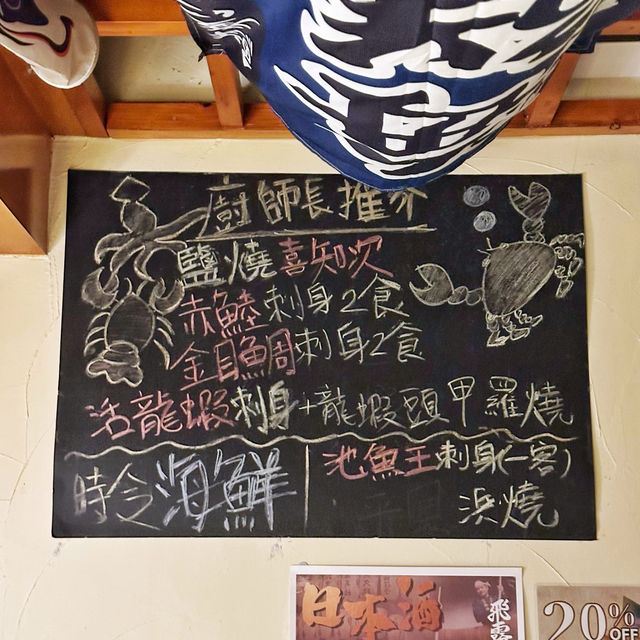 廚師長推介
鹽燒喜知次
赤鯥刺身2食
金目鯛刺身2食
活龍蝦刺身+龍蝦頭甲羅燒
時令海鮮
池魚王刺身(一客)
浜燒
日本酒
飛露
20%
OFF